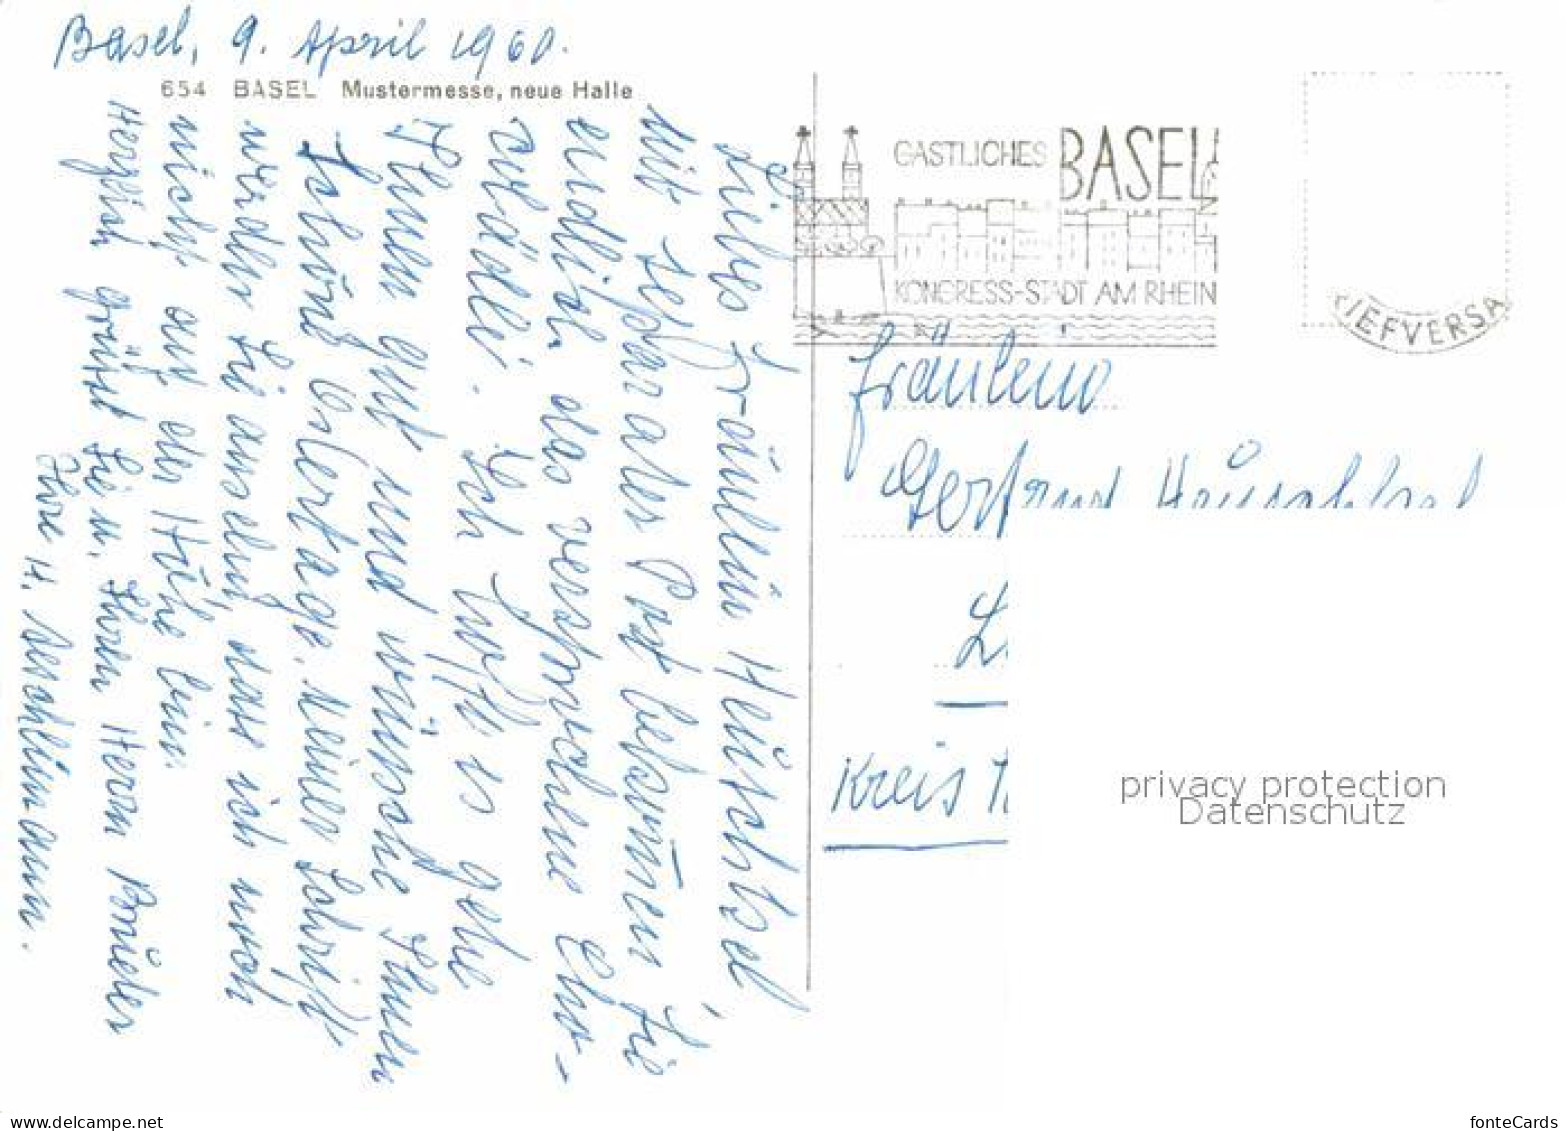 Basel, 9. April 1960.
654 BASEL Mustermesse, neue Halle
Liebes Fräulein Heuschsel,
Mit separater Post bekommen Sie
endlich das versprochene Cho-
colädli. Ich hoffe es gehe
Ihnen gut und wünsche Ihnen
schöne Ostertage. Meiner Schrift
werden Sie ansehn, dass ich noch
nicht auf der Höhe bin.
Herzlich grüsst Sie u. Ihren Herrn Bruder
Ihre H.
GASTLICHES BASEL
KONGRESS-STADT AM RHEIN
IEFVERSA
Fräulein
Gertrud
Kreis
privacy protection
Datenschutz
delcampe.net
fonteCards